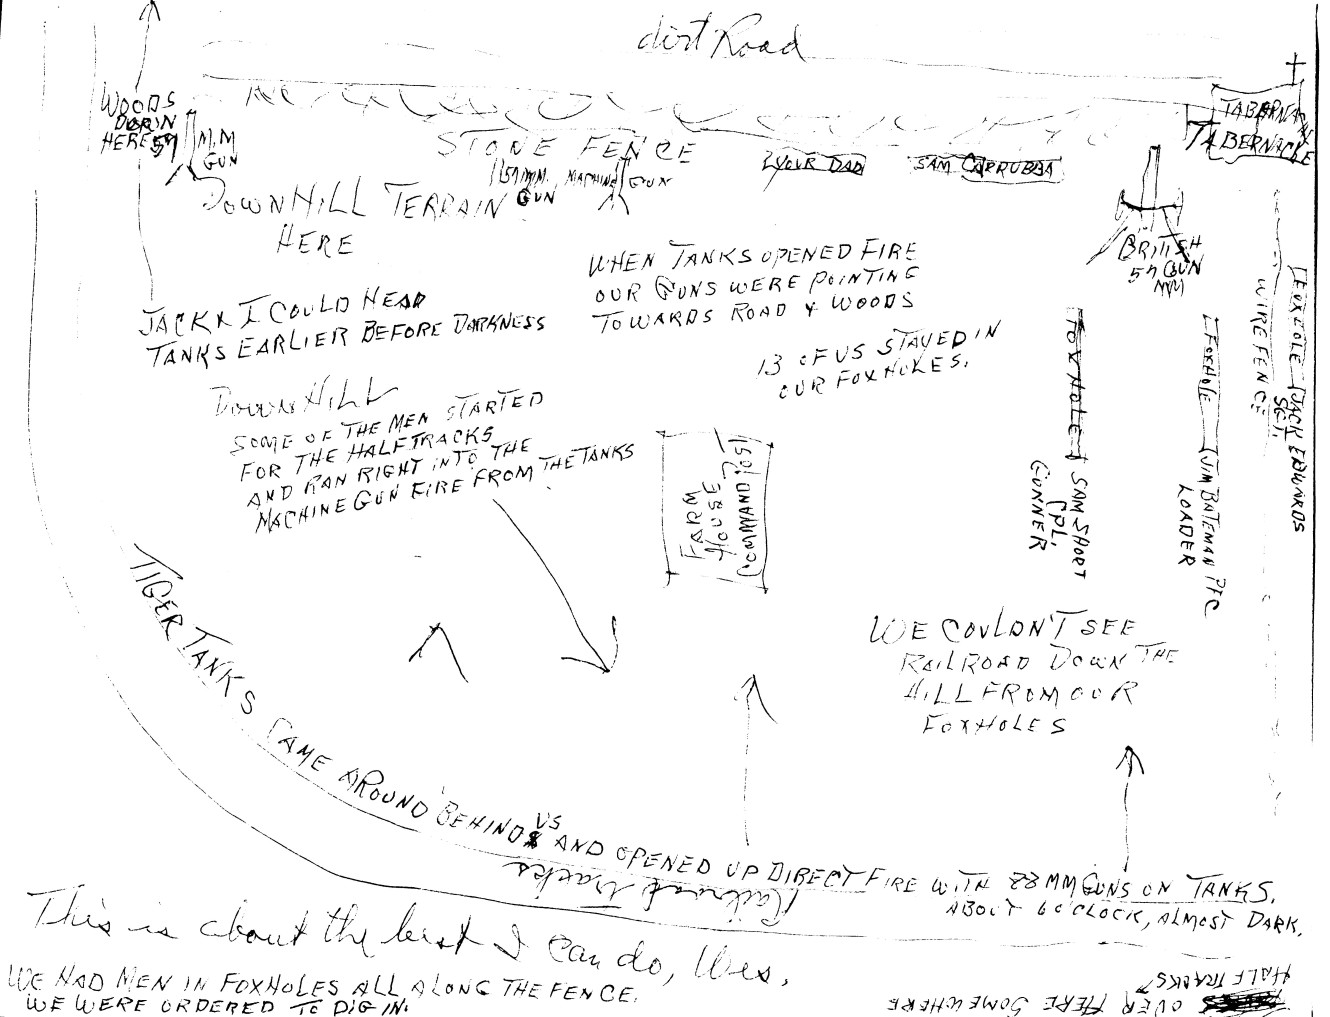 dirt Road
WOODS
DOWN
HERE
57
M.M
GUN
STONE FENCE
57MM.
GUN
MACHINE
GUN
YOUR DAD
SAM CARRUBBA
TABERNACLE
TABERNACLE
DOWNHILL TERRAIN
HERE
BRITISH
57 GUN
MM
WHEN TANKS OPENED FIRE
OUR GUNS WERE POINTING
TOWARDS ROAD & WOODS
JACK & I COULD HEAR
TANKS EARLIER BEFORE DARKNESS
13 OF US STAYED IN
OUR FOXHOLES.
DOWNHILL
SOME OF THE MEN STARTED
FOR THE HALFTRACKS
AND RAN RIGHT INTO THE
MACHINE GUN FIRE FROM THE TANKS
FARM
HOUSE
COMMAND POST
FOXHOLE SAM SHORT
CPL.
GUNNER
FOXHOLE JIM BATEMAN PFC
LOADER
WIRE FENCE
FOXHOLE JACK EDWARDS
SGT.
WE COULDN'T SEE
RAILROAD DOWN THE
HILL FROM OUR
FOXHOLES
TIGER TANKS CAME AROUND BEHIND US AND OPENED UP DIRECT FIRE WITH 88 MM GUNS ON TANKS.
ABOUT 6 O'CLOCK, ALMOST DARK.
Railroad tracks
This is about the best I can do, Wes.
WE HAD MEN IN FOXHOLES ALL ALONG THE FENCE.
WE WERE ORDERED TO DIG IN.
HALFTRACKS
OVER HERE SOMEWHERE